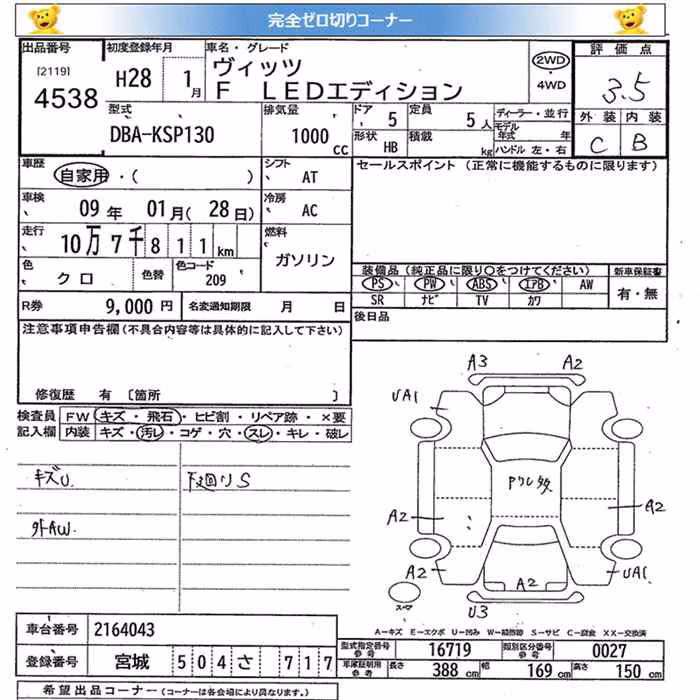 完全ゼロ切りコーナー
出品番号 初度登録年月 車名・グレード 評価点
[2119]
4538
H28 1月
ヴィッツ
F LEDエディション
2WD
・
4WD
3.5
型式 排気量 ドア 定員 ディーラー・並行 外装 内装
DBA-KSP130 1000cc 5 5人
モデル年式 年
形状 HB 積載 kg ハンドル 左・右
C B
車歴 シフト セールスポイント (正常に機能するものに限ります)
自家用・( ) AT
車検 冷房
09年 01月(28日) AC
走行 燃料
10万7千811km ガソリン
色 色替 色コード
クロ 209
装備品(純正品に限り○をつけてください) 新車保証書
PS PW ABS エアB AW 有・無
SR ナビ TV カワ
R券 9,000円 名変通知期限 月 日
後日品
注意事項申告欄(不具合内容等は具体的に記入して下さい)
修復歴 有 〔箇所 〕
検査員 FW キズ・飛石・ヒビ割・リペア跡・×要
記入欄 内装 キズ・汚レ・コゲ・穴・スレ・キレ・破レ
キズU 下廻りS
外AW
A3 A2
UA1
A2
A2
A2
A2
UA1
U3
A-キズ E-エクボ U-凹み W-補修跡 S-サビ C-腐食 XX-交換済
車台番号 2164043
登録番号 宮城 504 さ 717
型式指定番号 参考 16719 類別区分番号 参考 0027
長さ 388cm 幅 169cm 高さ 150cm
希望出品コーナー(コーナーは各会場により異なります。)